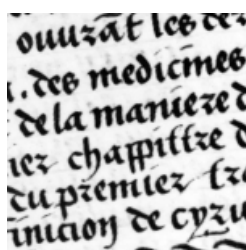 ouurāt les
. des medicines
de la maniere d
iez chappittre d
du premier tra
inicion de cyru